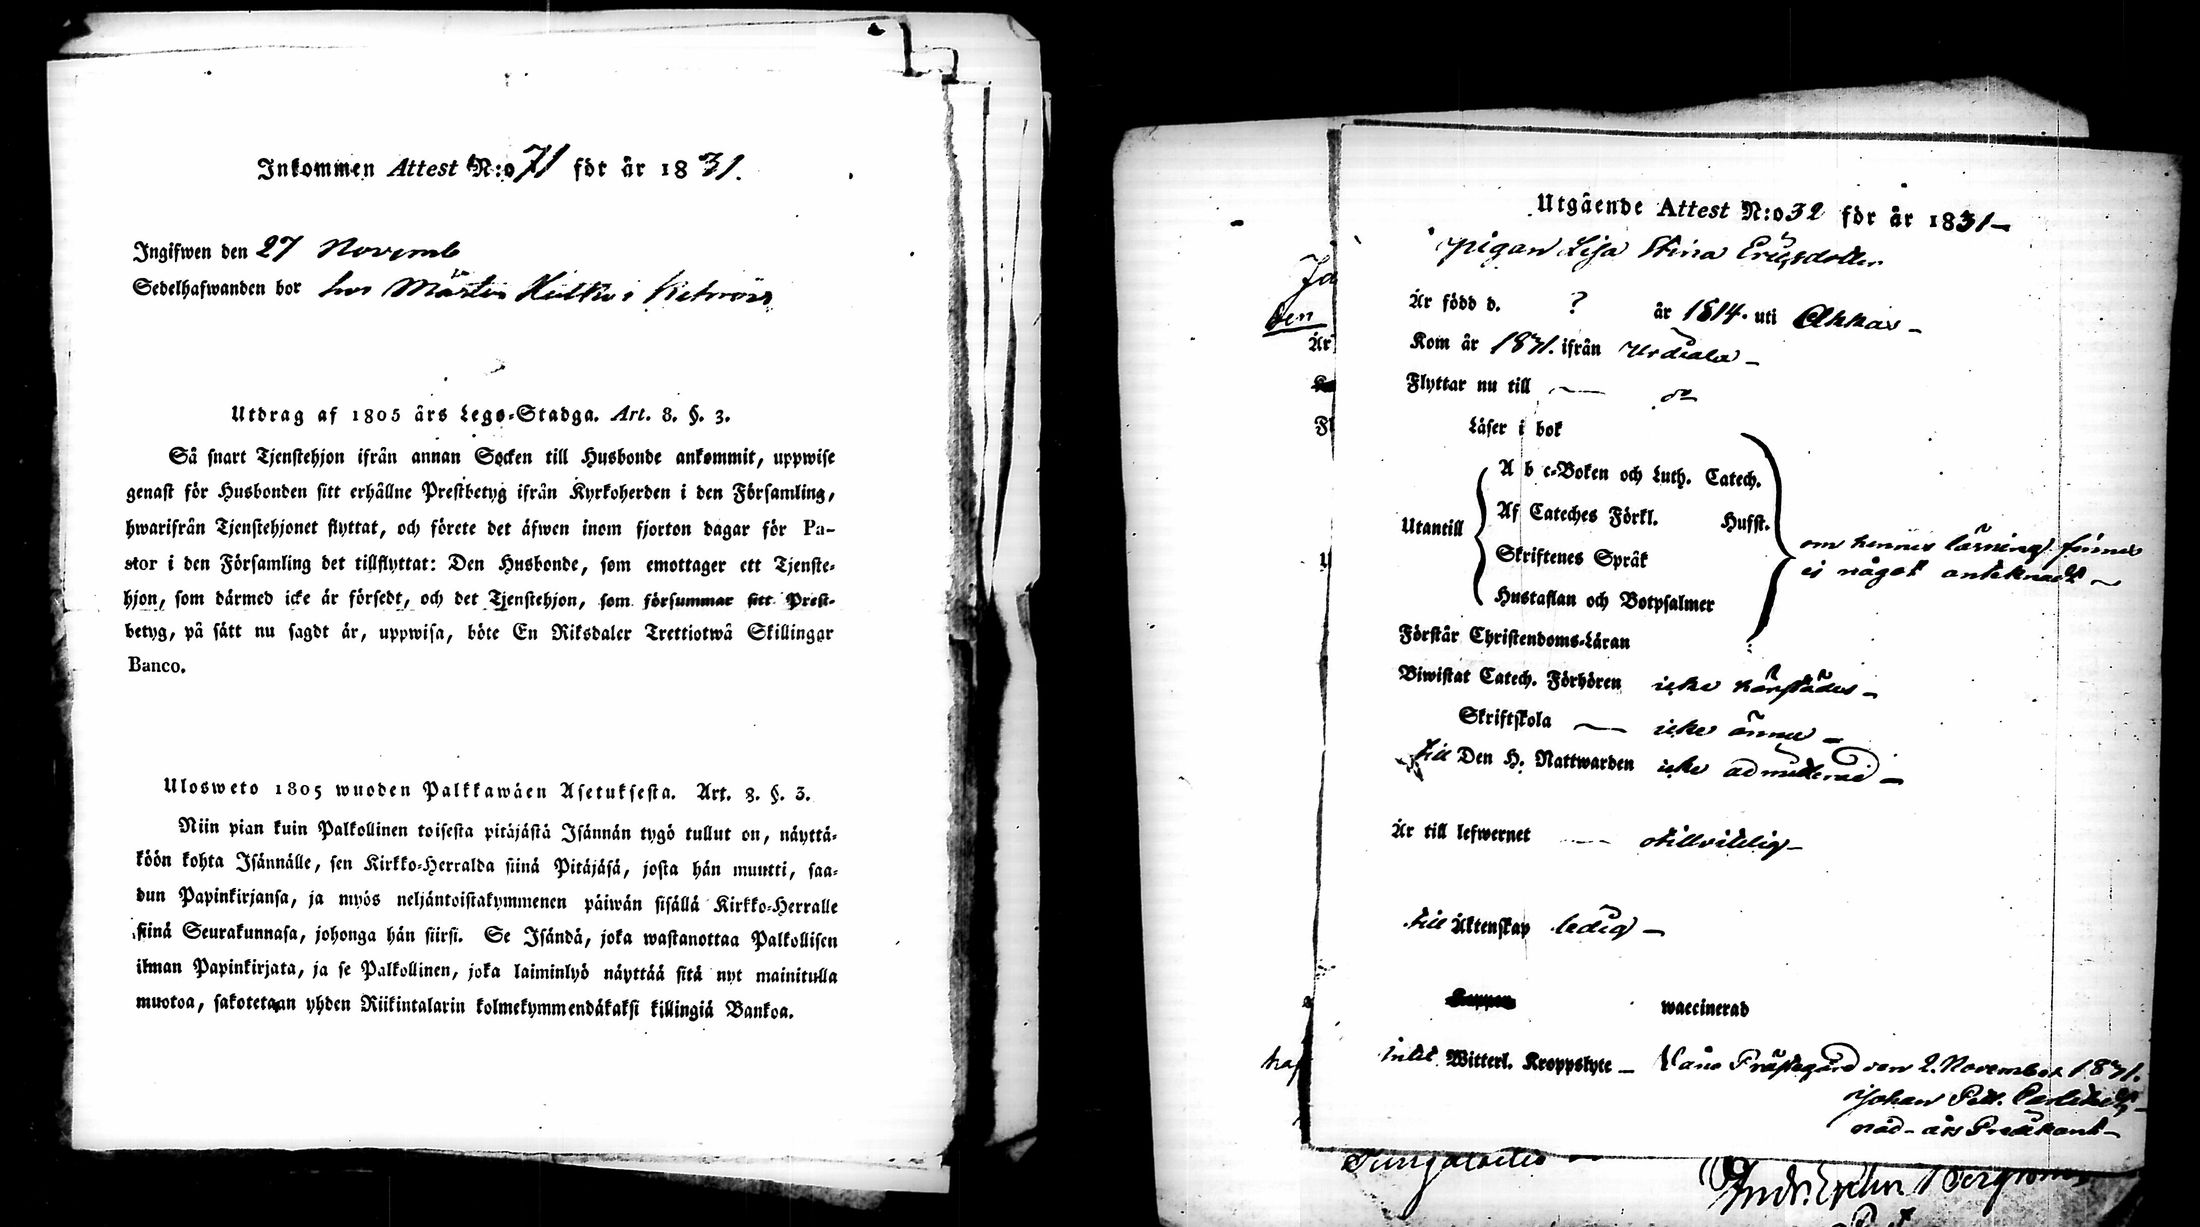 Inkommen Attest N:o 71 för år 1831.
Ingifwen den 27 Novemb
Sedelhafwanden bor hos Mårten
Utdrag af 1805 års Lego-Stadga. Art. 8. §. 3.
Så snart Tjenstehjon ifrån annan Socken till Husbonde ankommit, uppwise
genast för Husbonden sitt erhållne Prestbetyg ifrån Kyrkoherden i den Församling,
hwarifrån Tjenstehjonet flyttat, och förete det äfwen inom fjorton dagar för Pa-
stor i den Församling det tillflyttat: Den Husbonde, som emottager ett Tjenste-
hjon, som därmed icke är försedt, och det Tjenstehjon, som försummar sitt Prest-
betyg, på sätt nu sagdt är, uppwisa, böte En Riksdaler Trettiotwå Skillingar
Banco.
Ulosweto 1805 wuoden Palkkawäen Asetuksesta. Art. 8. §. 3.
Niin pian kuin Palkollinen toisesta pitäjästä Isännän tygö tullut on, näyttä-
köön kohta Isännälle, sen Kirkko-Herralda siinä Pitäjäsä, josta hän muutti, saa-
dun Papinkirjansa, ja myös neljäntoistakymmenen päiwän sisällä Kirkko-Herralle
siinä Seurakunnasa, johonga hän siirsi. Se Isändä, joka wastanottaa Palkollisen
ilman Papinkirjata, ja se Palkollinen, joka laiminlyö näyttää sitä nyt mainitulla
muotoa, sakotetaan yhden Riikintalarin kolmekymmendäkaksi killingiä Bankoa.
Utgående Attest N:o 32 för år 1831
Pigan Lisa Stina Ericsdotter
Är född d. ? år 1814. uti Akkas
Kom år 1831. ifrån Urdiala
Flyttar nu till do
Läser i bok
A b c-Boken och Luth. Catech.
Af Cateches Förkl. Husst.
Utantill
Skriftenes Språk
Hustaflan och Botpsalmer
om hennes läsning finnes
ej något antecknadt
Förstår Christendoms-Läran
Biwistat Catech. Förhören icke härstädes
Skriftskola icke ännu
till Den H. Nattwarden icke admitterad
Är till lefwernet otillvitelig
till Äktenskap ledig
waccinerad
intet Witterl. Kroppslyte Prästegård den 2. November 1831.
Johan Petr.